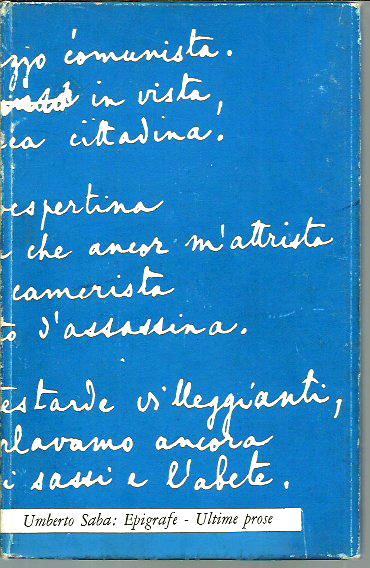 zzo comunista.
in vista,
cittadina.
vespertina
che ancor m'attrista
camerista
d'assassina.
tarde villeggianti,
rlavamo ancora
i sassi e l'abete.
Umberto Saba: Epigrafe - Ultime prose